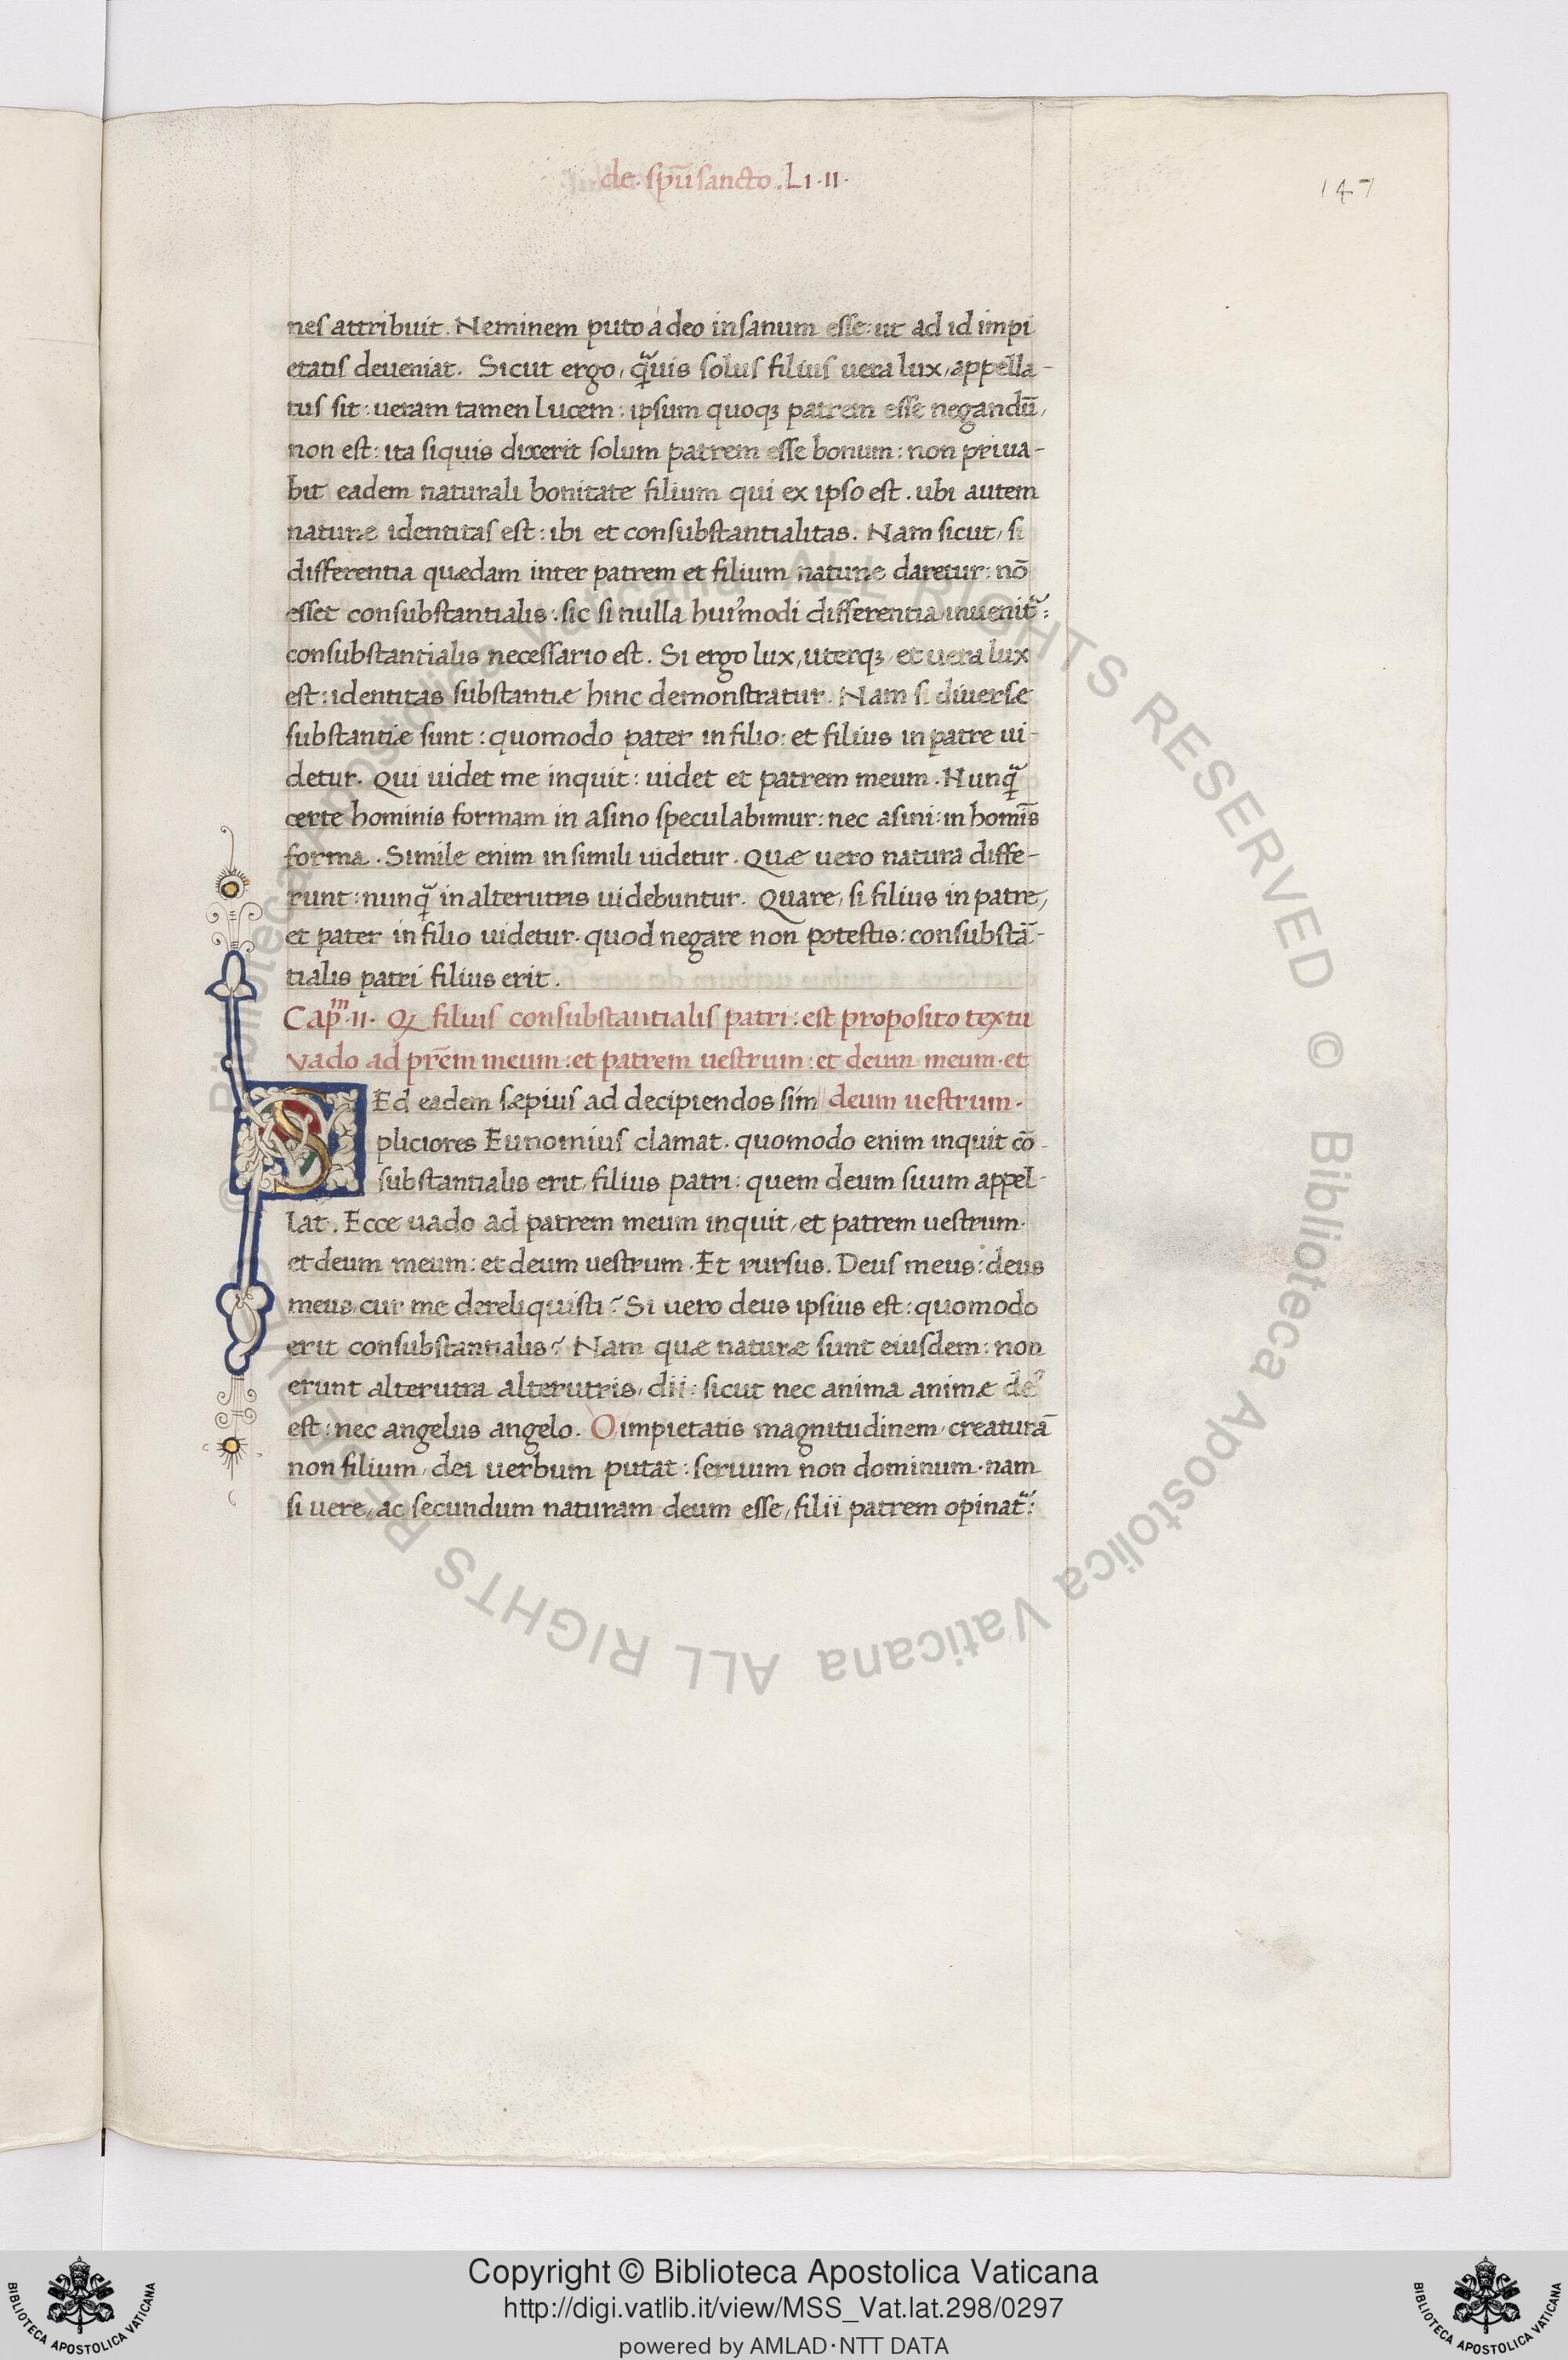 de. spūsancto. Li·II·
147
nes attribuit. Neminem puto adeo insanum esse: ut ad id impi
etatis deueniat. Sicut ergo, q̃uis solus filius uera lux, appella-
tus sit: ueram tamen Lucem: ipsum quoqꝫ patrem esse negandū,
non est: ita siquis dixerit solum patrem esse bonum: non priua-
bit eadem naturali bonitate filium qui ex ipso est. ubi autem
naturæ identitas est: ibi et consubstantialitas. Nam sicut, si
differentia quædam inter patrem et filium naturæ daretur: nō
esset consubstantialis: sic si nulla hui'modi differentia inuenit᷑:
consubstantialis necessario est. Si ergo lux, uterqꝫ, et uera lux
est: identitas substantiæ hinc demonstratur. Nam si diuersæ
substantiæ sunt: quomodo pater in filio: et filius in patre ui-
detur. Qui uidet me inquit: uidet et patrem meum. Nunq̃
certe hominis formam in asino speculabimur: nec asini: in homīs
forma. Simile enim in simili uidetur. Quæ uero natura diffe-
runt: nunq̃ in alterutris uidebuntur. Quare, si filius in patre,
et pater in filio uidetur. quod negare non potestis: consubstā-
tialis patri filius erit.
Cap̃ᵐ·II· Qꝫ filius consubstantialis patri: est proposito textu
Vado ad pr̄em meum: et patrem uestrum: et deum meum. et
SEd eadem sæpius ad decipiendos sim deum uestrum.
pliciores Eunomius clamat. quomodo enim inquit cō-
substantialis erit, filius patri: quem deum suum appel-
lat. Ecce uado ad patrem meum inquit, et patrem uestrum.
et deum meum: et deum uestrum. Et rursus. Deus meus: deus
meus, cur me dereliquisti? Si uero deus ipsius est: quomodo
erit consubstantialis? Nam quæ naturæ sunt eiusdem: non
erunt alterutra alterutris, dii: sicut nec anima animæ de᾽
est: nec angelus angelo. O impietatis magnitudinem, creaturā
non filium, dei uerbum putat: seruum non dominum. nam
si uere, ac secundum naturam deum esse, filii patrem opinat᷑:
© Biblioteca Apostolica Vaticana ALL RIGHTS RESERVED © Biblioteca Apostolica Vaticana ALL RIGHTS RESERVED
Copyright © Biblioteca Apostolica Vaticana
http://digi.vatlib.it/view/MSS_Vat.lat.298/0297
powered by AMLAD·NTT DATA
BIBLIOTECA APOSTOLICA VATICANA
BIBLIOTECA APOSTOLICA VATICANA